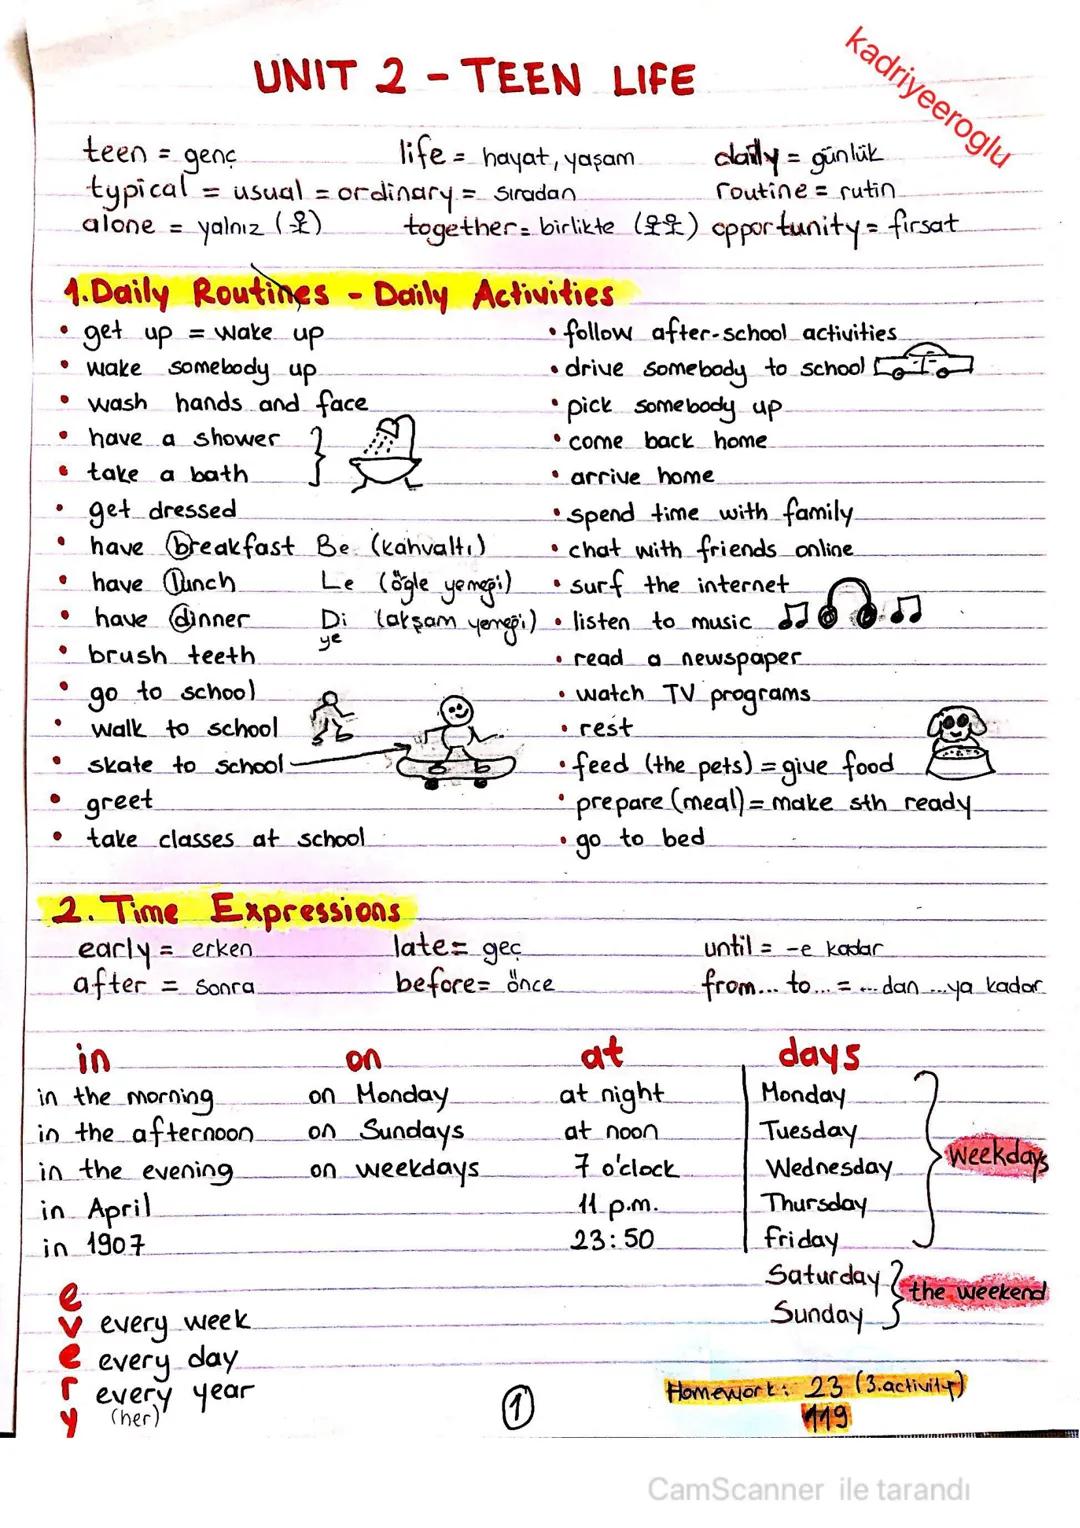 kadriyeeroglu
UNIT 2 - TEEN LIFE
teen = genç life = hayat, yaşam daily = günlük
typical = usual = ordinary = sıradan routine = rutin
alone = yalnız (웃) together = birlikte (웃웃) opportunity = fırsat
1. Daily Routines - Daily Activities
• get up = wake up
• wake somebody up
• wash hands and face
• have a shower
• take a bath
• get dressed
• have breakfast Be (kahvaltı)
• have lunch Le (öğle yemeği)
• have dinner Di (akşam yemeği)
ye
• brush teeth
• go to school
• walk to school
• skate to school
• greet
• take classes at school
• follow after-school activities
• drive somebody to school
• pick somebody up
• come back home
• arrive home
• spend time with family
• chat with friends online
• surf the internet
• listen to music
• read a newspaper
• watch TV programs
• rest
• feed (the pets) = give food
• prepare (meal) = make sth ready
• go to bed
2. Time Expressions
early = erken late = geç until = -e kadar
after = sonra before = önce from... to... = ...dan ...ya kadar
in
in the morning
in the afternoon
in the evening
in April
in 1907
on
on Monday
on Sundays
on weekdays
at
at night
at noon
7 o'clock
11 p.m.
23:50
days
Monday
Tuesday
Wednesday
Thursday
Friday
weekdays
Saturday
Sunday
the weekend
every
every week
every day
every year
(her)
1
Homework: 23 (3.activity)
119
CamScanner ile tarandı